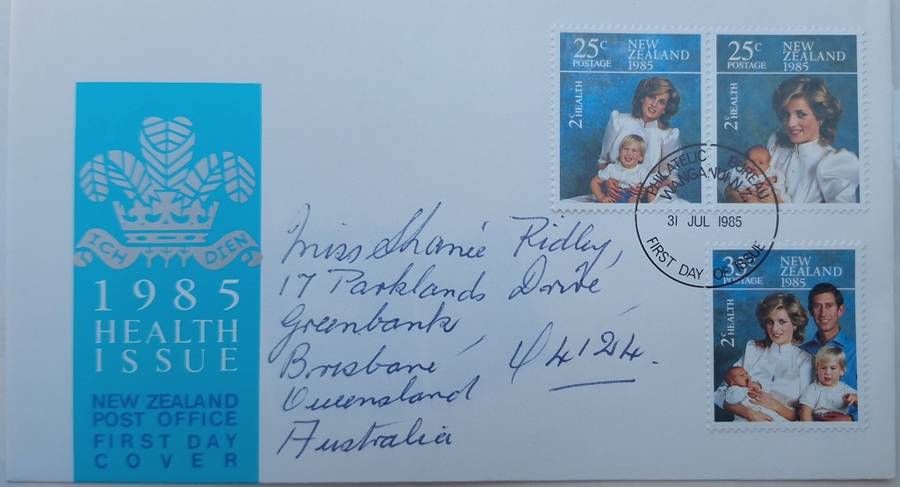 25c
POSTAGE
NEW
ZEALAND
1985
2c HEALTH
25c
POSTAGE
NEW
ZEALAND
1985
2c HEALTH
PHILATELIC BUREAU
WANGANUI N.Z
31 JUL 1985
FIRST DAY OF ISSUE
POSTAGE
NEW
ZEALAND
1985
2c HEALTH
ICH DIEN
1985
HEALTH
ISSUE
NEW ZEALAND
POST OFFICE
FIRST DAY
COVER
Miss Shanie Ridley,
17 Parklands Drive
Greenbank,
Brisbane Q 4124.
Queensland
Australia